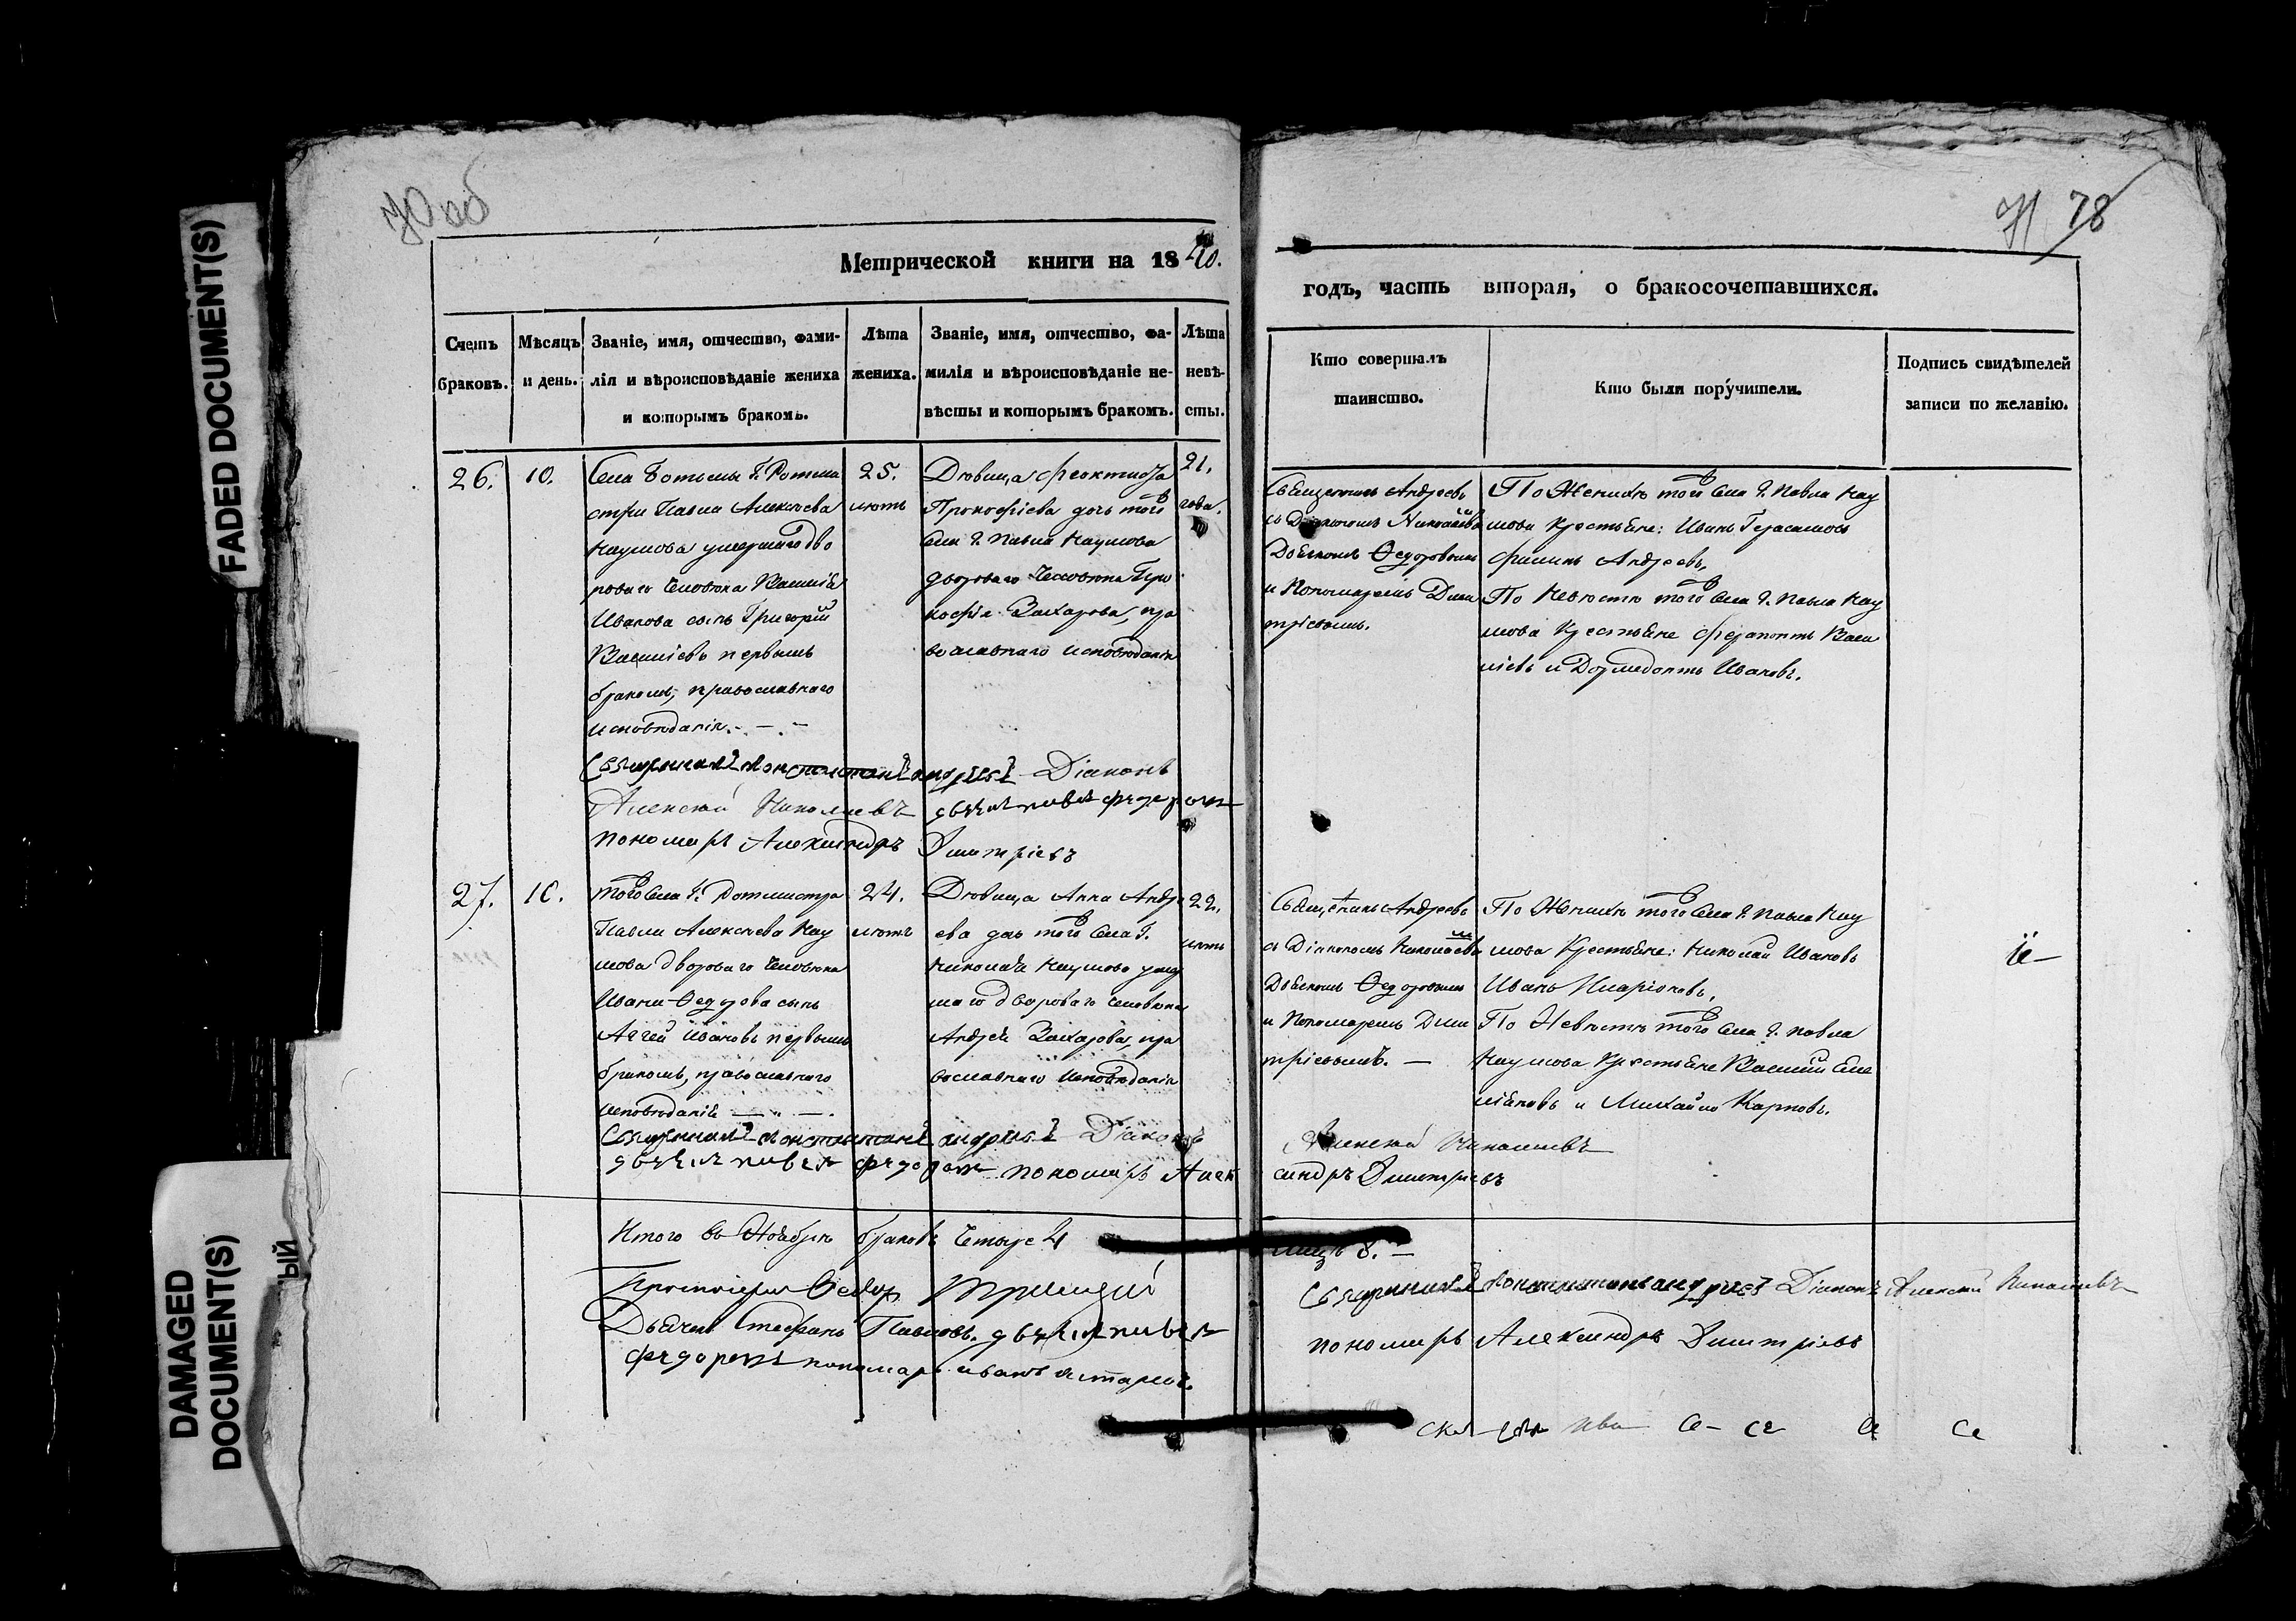 FADED DOCUMENT(S)
DAMAGED
DOCUMENT(S)
ЫЙ
70 об
71 78
Метрической книги на 1840.
годъ, часть вторая, о бракосочетавшихся.
Счетъ
браковъ.
Мѣсяцъ
и день.
Званіе, имя, отчество, фами-
лія и вѣроисповѣданіе жениха
и которымъ бракомъ.
Лѣта
жениха.
Званіе, имя, отчество, фа-
милія и вѣроисповѣданіе не-
вѣсты и которымъ бракомъ.
Лѣта
невѣ-
сты.
Кто совершалъ
таинство.
Кто были поручители.
Подпись свидѣтелей
записи по желанію.
26.
10.
Села Ботьмы Г. Ротми
стра Павла Алексѣева
Наумова умершаго дво
роваго человѣка Василія
Иванова сынъ Григорій
Василіевъ первымъ
бракомъ, православнаго
исповѣданія.
25.
лѣтъ
Дѣвица Феоктиста
Прокофіева дочь того
села Г. Павла Наумова
двороваго человѣка Про
кофія Захарова, пра
вославнаго исповѣданія
21.
года.
Священникъ Андреевъ
съ Діакономъ Николаевым
Дьячкомъ Ѳедоровымъ
и Пономаремъ Дми
тріевымъ.
По Женихѣ того села Г. Павла Нау
мова Крестьяне: Иванъ Герасимовъ
Филипъ Андреевъ,
По Невѣстѣ того села Г. Павла Нау
мова Крестьяне Ферапонтъ Васи
ліевъ и Дормедонтъ Ивановъ.
Священникъ Константинъ Андреевъ Діаконъ
Алексѣй Николаевъ дьячекъ Федоровъ
пономарь Александръ Дмитріевъ
27.
10.
того села Г. Ротмистра
Павла Алексѣева Нау
мова двороваго человѣка
Ивана Ѳедорова сынъ
Аггей Ивановъ первымъ
бракомъ, православнаго
исповѣданія
24.
лѣтъ
Дѣвица Анна Андре
ева дочь того села Г.
Николая Наумова умер
шаго двороваго человѣка
Андрея Захарова, пра
вославнаго исповѣданія
22.
лѣтъ
Священникъ Андреевъ
съ Діакономъ Николаевым
Дьячкомъ Ѳедоровымъ
и Пономаремъ Дми
тріевымъ.
По Женихѣ того села Г. Павла Нау
мова Крестьяне: Николай Ивановъ
Иванъ Иларіоновъ,
По Невѣстѣ того села Г. Павла
Наумова Крестьяне Василий Еме
ліановъ и Михайло Карповъ.
Священникъ Константинъ Андреевъ Діаконъ Алексѣй Николаевъ
дьячекъ Федоровъ пономарь Александръ Дмитріевъ
Итого въ Ноябрѣ браковъ четыре 4 лицъ 8.
Священникъ Константинъ Андреевъ Діаконъ Алексѣй Николаевъ
пономарь Александръ Дмитріевъ
Дьячекъ Стефанъ Павловъ.
Федоровъ пономарь Иванъ